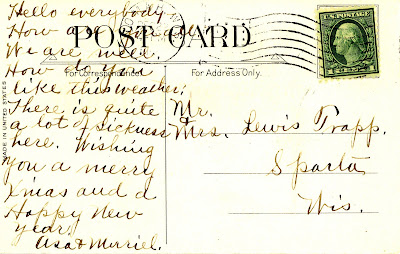 Hello everybody
How are you all
We are well.
How do you
like this weather;
There is quite
a lot of sickness
here. Wishing
you a merry
Xmas and a
Happy New
year,
Asa & Murriel.
POST CARD
For Correspondence.
For Address Only.
MADE IN UNITED STATES
U.S. POSTAGE
Mr. &
Mrs. Lewis Trapp.
Sparta
Wis.